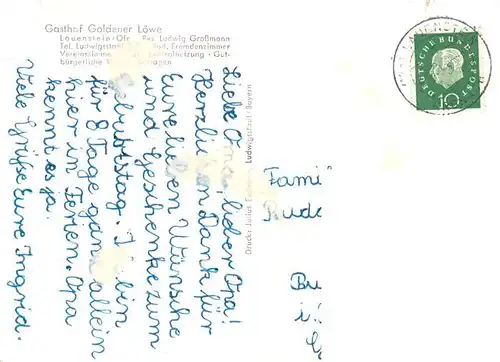 Gasthof Goldener Löwe
Lauenstein/Ofr. Bes. Ludwig Großmann
Tel. Ludwigsstadt Bad, Fremdenzimmer
Vereinszimmer heizung · Gut-
bürgerliche
Liebe Oma, lieber Opa!
Herzlichen Dank für
Eure lieben Wünsche
und Geschenke zum
Geburtstag. Ich bin
für 8 Tage ganz allein
hier in Ferien. Opa
kennt es ja.
Viele Grüße Eure Ingrid.
Druck: Ludwigsstadt/Bayern
DEUTSCHE BUNDESPOST
10
LAUENSTEIN
Fami
Rude
Bu
i.